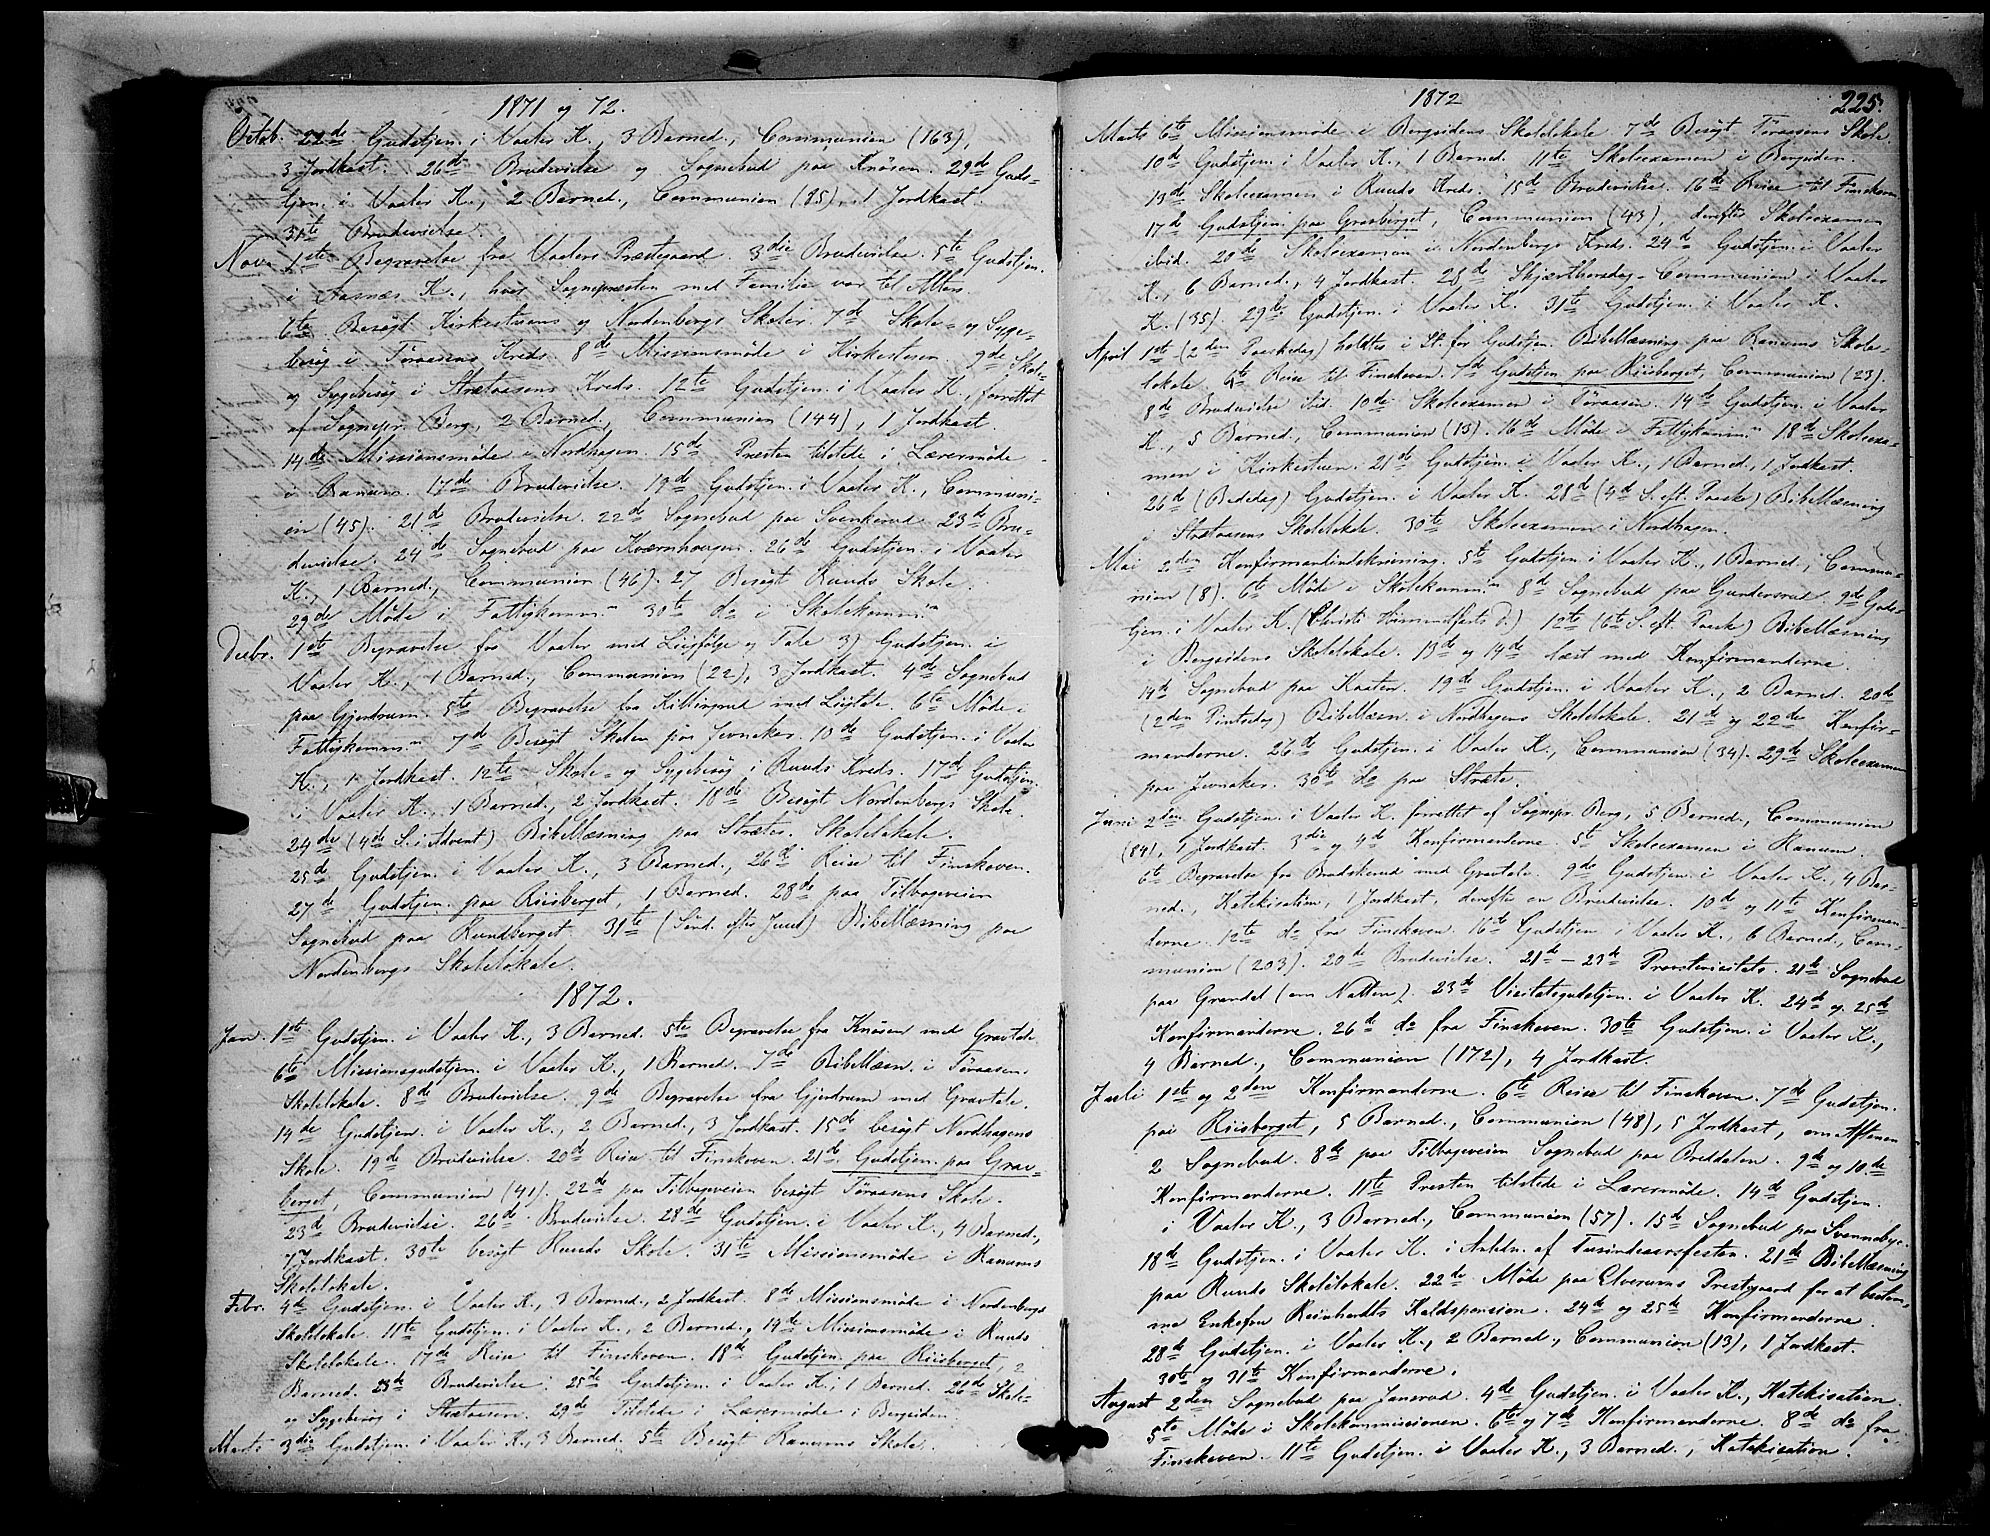 1871 og 72.
Octob. 22de Gudstjen. i Vaaler K., 3 Barned., Communion (163),
3 Jordkast. 26de Brudevielse og Sognebud paa Knösen. 29de Guds-
tjen. i Vaaler K., 2 Barned., Communion (85), 1 Jordkast.
31te Brudevielse.
Novr. 1ste Begravelse fra Vaalers Præstegaard. 3die Brudevielse. 5te Gudstjen.
i Aasnæs K., hvor Sognepræsten med Familie var til Alters.
6te Besögt Kirkestuens og Nordenbergs Skoler. 7de Skole- og Syge-
besög i Töraasens Kreds. 8de Missionsmöde i Kirkestuen. 9de Skole-
og Sygebesög i Strætaasens Kreds. 12te Gudstjen. i Vaaler K., forrettet
af Sognepr. Berg, 2 Barned., Communion (144), 1 Jordkast.
14de Missionsmöde i Nordhagen. 15de Præsten tilstede i Lærermöde
i Ranum. 17de Brudevielse. 19de Gudstjen. i Vaaler K., Communi-
on (45). 21de Brudevielse. 22de Sognebud paa Svenkerud. 23de Bru-
devielse. 24de Sognebud paa Kværnhaugen. 26de Gudstjen. i Vaaler
K., 1 Barned., Communion (46). 27 Besögt Ruuds Skole.
29de Möde i Fattigkomm.n 30te do i Skolekomm.n
Decbr. 1ste Begravelse fra Vaaler med Liigfölge og Tale. 3) Gudstjen. i
Vaaler K., 1 Barned., Communion (22), 3 Jordkast. 4de Sognebud
paa Gjerdrum. 5te Begravelse fra Killingrud med Liigtale. 6te Möde i
Fattigkomms.n 7de Besögt Skolen paa Jevnaker. 10de Gudstjen. i Vaaler
K., 1 Jordkast. 12te Skole- og Sygebesög i Ruuds Kreds. 17de Gudstjen.
i Vaaler K., 1 Barned., 2 Jordkast. 18de Besögt Nordenbergs Skole.
24de (4de S. i Advent) Bibellæsning paa Stræte. Skolelokale.
25de Gudstjen. i Vaaler K., 3 Barned., 26de Reise til Finskoven.
27de Gudstjen. paa Riisberget, 1 Barned. 28de paa Tilbageveien
Sognebud paa Rundberget. 31te (Sönd. efter Juul) Bibellæsning paa
Nordenbergs Skolelokale.
1872.
Jan. 1ste Gudstjen. i Vaaler K., 3 Barned. 5te Begravelse fra Knösen med Gravtale.
6te Missionsgudstjen. i Vaaler K., 1 Barned. 7de Bibellæsn. i Töraasens
Skolelokale. 8de Brudevielse. 9de Begravelse fra Gjerdrum med Gravtale.
14de Gudstjen. i Vaaler K., 2 Barned., 3 Jordkast. 15de besögt Nordhagens
Skole. 19de Brudevielse. 20de Reise til Finskoven. 21de Gudstjen. paa Grav-
berget, Communion (41). 22de paa Tilbageveien besögt Töraasens Skole.
23de Brudevielse. 26de Brudevielse. 28de Gudstjen. i Vaaler K., 4 Barned.,
7 Jordkast. 30te besögt Ruuds Skole. 31te Missionsmöde i Ranums
Skolelokale.
Febr. 4de Gudstjen. i Vaaler K., 3 Barned., 2 Jordkast. 8de Missionsmöde i Nordenbergs
Skolelokale. 11te Gudstjen. i Vaaler K., 2 Barned., 14de Missionsmöde i Ruuds
Skolelokale. 17de Reise til Finskoven. 18de Gudstjen. paa Riisberget, 2
Barned. 23de Brudevielse. 25de Gudstjen. i Vaaler K., 1 Barned. 26de Skole-
og Sygebesög i Strætaasen. 29de Tilstede i Lærermöde i Bergsiden.
Marts 3die Gudstjen. i Vaaler K., 3 Barned. 5te Besögt Ranums Skole.
1872
225.
Marts 6te Missionsmöde i Bergsidens Skolelokale. 7de Besögt Töraasens Skole.
10de Gudstjen. i Vaaler K., 1 Barned. 11te Skoleexamen i Bergsiden.
13de Skoleexamen i Ruuds Kreds. 15de Brudevielse. 16de Reise til Finskoven
17de Gudstjen. paa Gravberget, Communion (43), derefter Skoleexamen
ibid. 20de Skoleexamen i Nordenbergs Kreds. 24de Gudstjen. i Vaaler
K., 6 Barned., 4 Jordkast. 28de Skjærthorsdag-Communion i Vaaler
K. (35). 29de Gudstjen. i Vaaler K. 31te Gudstjen. i Vaaler K.
April 1ste (2den Paaskedag) holdtes i St. for Gudstjen. Bibellæsning paa Ranums Skole-
lokale. 6te Reise til Finskoven. 7de Gudstjen paa Riisberget, Communion (23).
8de Brudevielse ibid. 10de Skoleexamen i Töraasen. 14de Gudstjen. i Vaaler
K., 5 Barned., Communion (15). 16de Möde i Fattigkomm.n 18de Skoleexa-
men i Kirkestuen. 21de Gudstjen. i Vaaler K., 1 Barned., 1 Jordkast.
26de (Bededag) Gudstjen. i Vaaler K. 28de (4de S. eft. Paaske) Bibellæsning
i Strætaasens Skolelokale. 30te Skoleexamen i Nordhagen.
Mai 2den Konfirmandindskrivning. 5te Gudstjen. i Vaaler K., 1 Barned., Commu-
nion (8). 6te Möde i Skolekomm.n 8de Sognebud paa Gundersrud. 9de Guds-
tjen. i Vaaler K. (Christi Himmelfarts D.) 12te (6te S. eft. Paaske) Bibellæsning
i Bergsidens Skolelokale. 13de og 14de læst med Konfirmanderne.
14de Sognebud paa Kaaten. 19de Gudstjen. i Vaaler K., 2 Barned. 20de
(2den Pintsedag) Bibellæsn. i Nordhagens Skolelokale. 21de og 22de Konfir-
manderne. 26de Gudstjen. i Vaaler K., Communion (34). 29de Skoleexamen
paa Jevnaker. 30te do paa Stræte.
Juni 2den Gudstjen. i Vaaler K. forrettet af Sognepr. Berg, 5 Barned., Communion
(84), 1 Jordkast. 3die og 4de Konfirmanderne. 5te Skoleexamen i Ranum.
6te Begravelse fra Bradskerud med Gravtale. 9de Gudstjen. i Vaaler K., 4 Bar-
ned., Katekisation, 1 Jordkast, derefter en Brudevielse. 10de og 11te Konfirman-
derne. 12te do fra Finskoven. 16te Gudstjen. i Vaaler K., 6 Barned., Com-
munion (203). 20de Brudevielse. 21de - 23de Provstevisitats. 21de Sognebud
paa Grandet (om Natten). 23de Visitatsgudstjen. i Vaaler K. 24de og 25de
Konfirmanderne. 26de do fra Finskoven. 30te Gudstjen. i Vaaler K.,
4 Barned., Communion (172), 4 Jordkast.
Juli 1ste og 2den Konfirmanderne. 6te Reise til Finskoven. 7de Gudstjen.
paa Riisberget, 5 Barned., Communion (48), 5 Jordkast, om Aftenen
2 Sognebud. 8de paa Tilbageveien Sognebud paa Breddalen. 9de og 10de
Konfirmanderne. 11te Presten tilstede i Lærermöde. 14de Gudstjen.
i Vaaler K., 3 Barned., Communion (57). 15de Sognebud paa Svennebye.
18de Gudstjen. i Vaaler K. i Anledn. af Tusindeaarsfesten. 21de Bibellæsning
paa Ruuds Skolelokale. 22de Möde paa Elverums Prestegaard for at bestem-
me Enkefru Reinhardts Kaldspension. 24de og 25de Konfirmanderne.
28de Gudstjen. i Vaaler K., 2 Barned., Communion (13), 1 Jordkast.
30te og 31te Konfirmanderne.
August 2den Sognebud paa Jansrud. 4de Gudstjen. i Vaaler K., Katekisation.
5te Möde i Skolekommissionen. 6te og 7de Konfirmanderne. 8de do fra
Finskoven. 11te Gudstjen. i Vaaler K., 3 Barned., Katekisation.